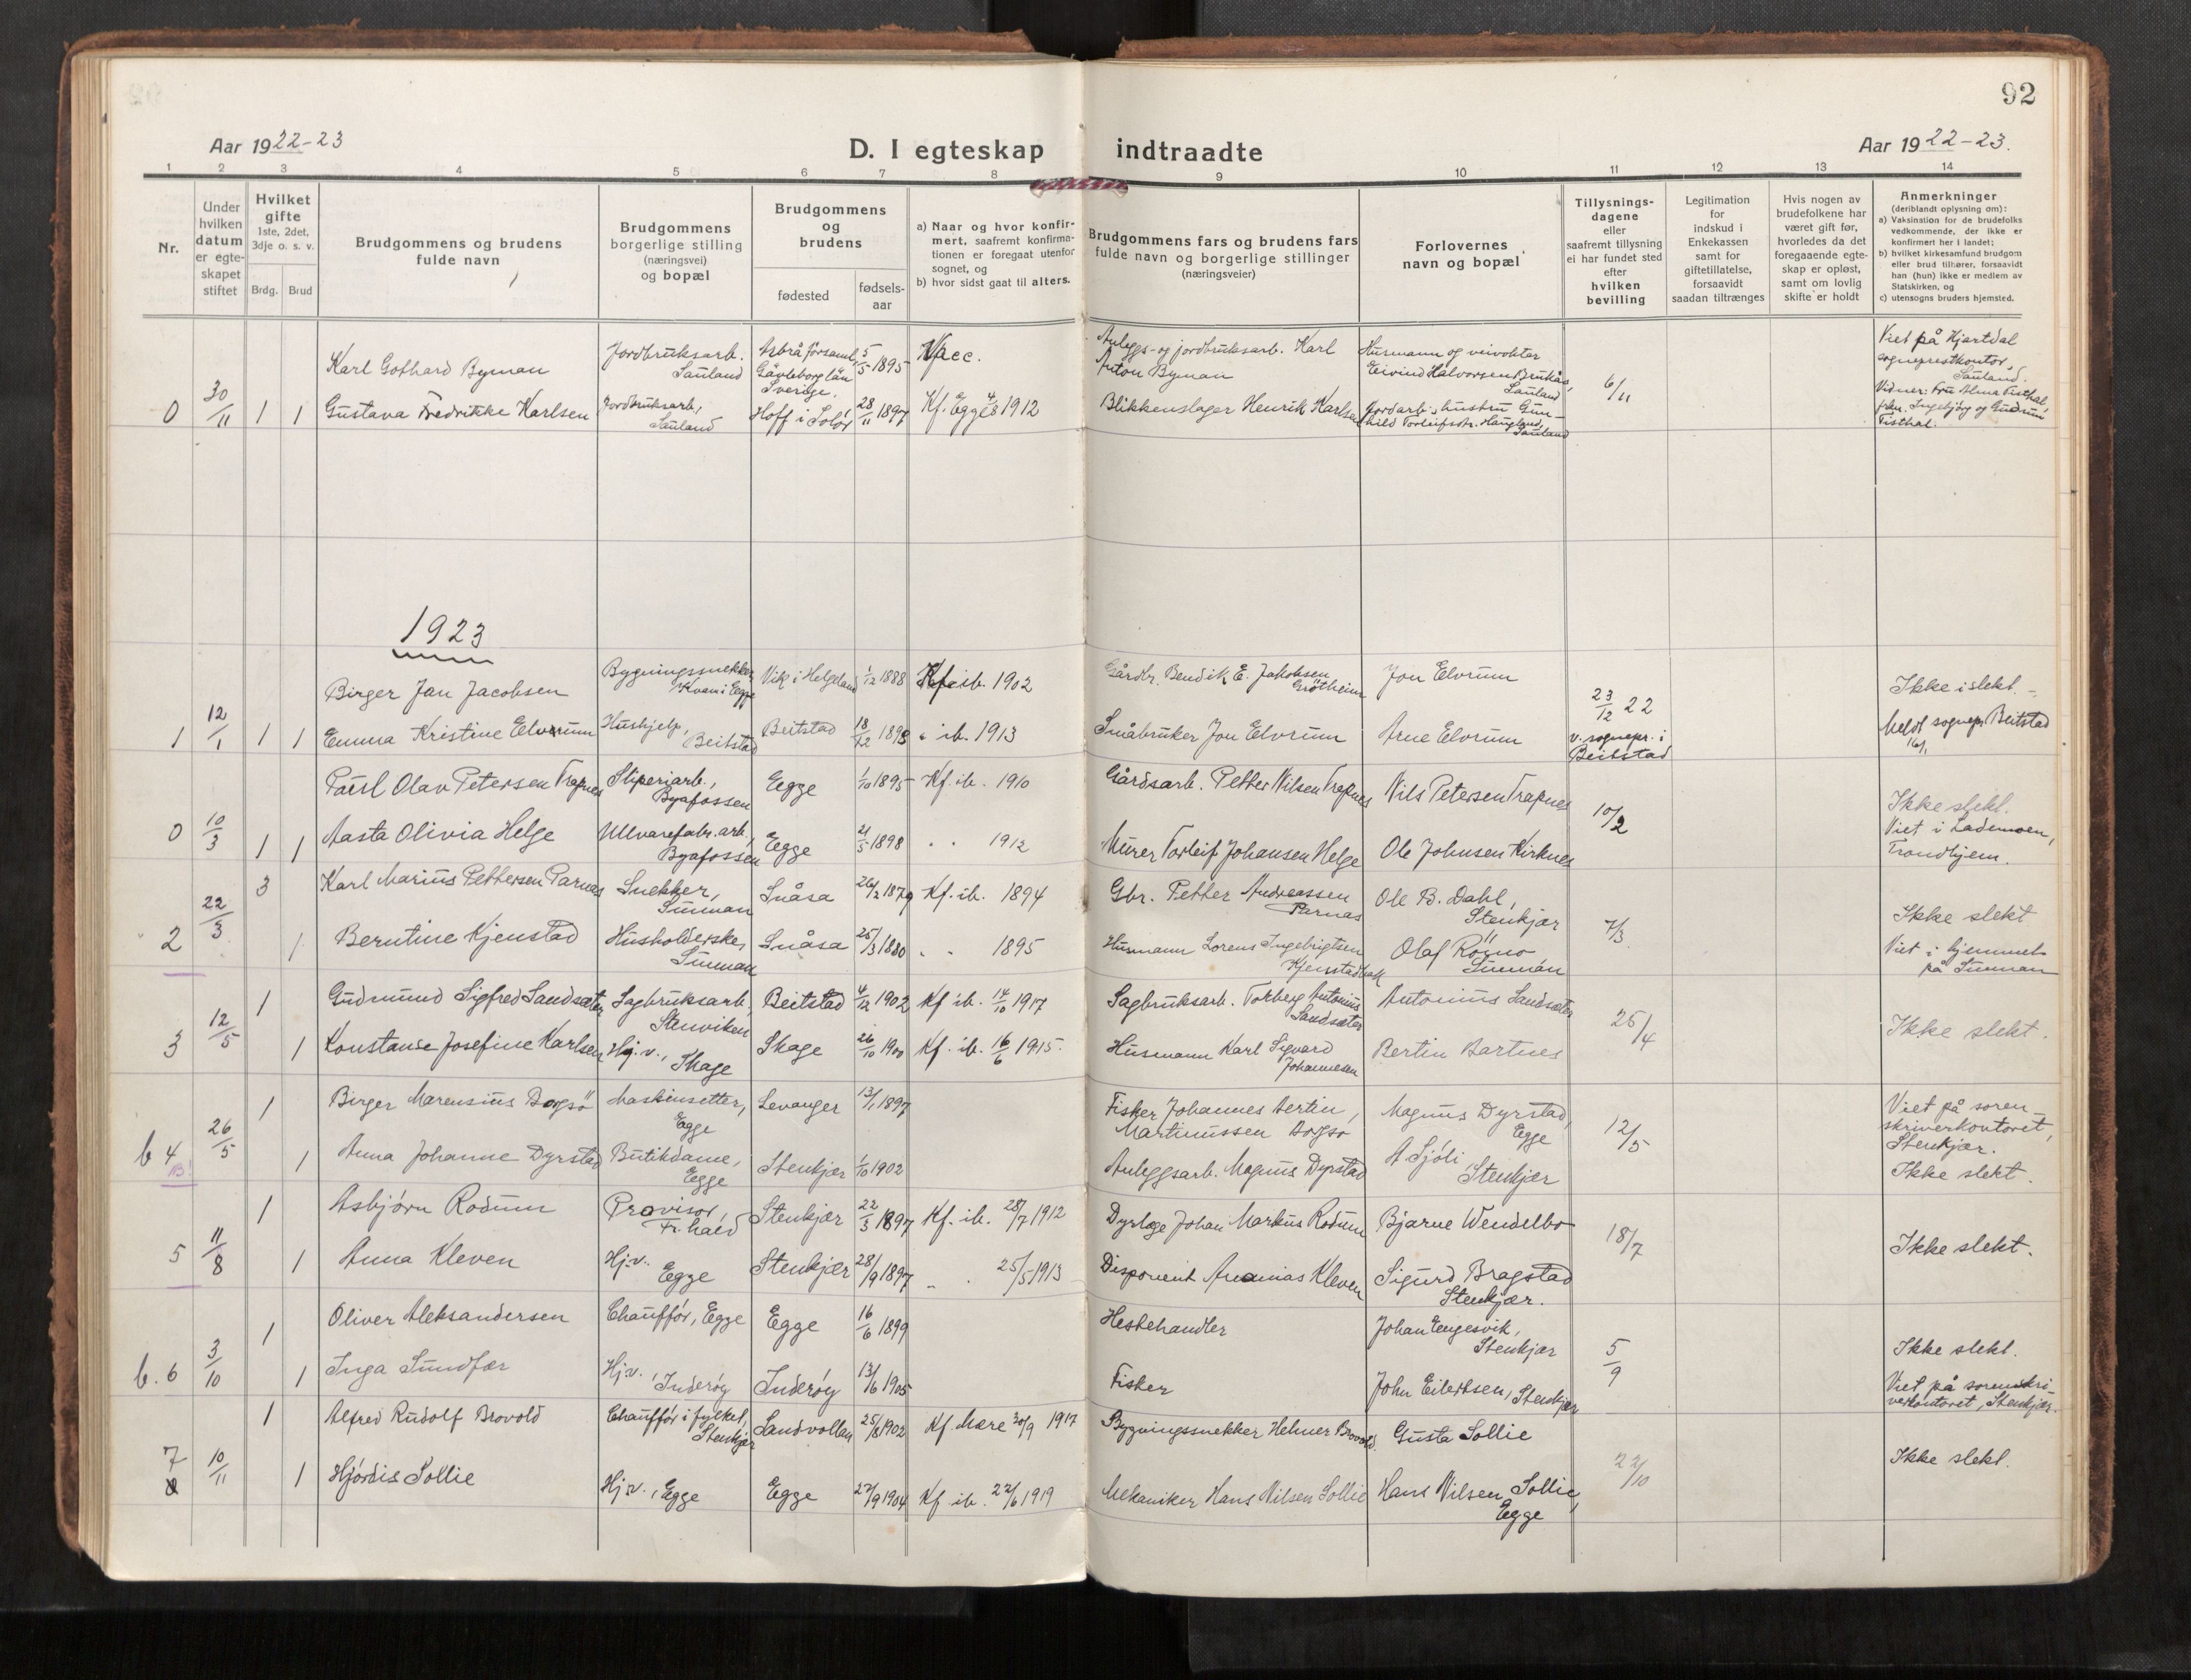 92
Aar 1922-23
D. I egteskap indtraadte
Aar 1922-23.
1 2 3 4 5 6 7 8 9 10 11 12 13 14
Nr.
Under hvilken datum er egteskapet stiftet
Hvilket gifte 1ste, 2det, 3dje o. s. v.
Brdg. Brud
Brudgommens og brudens fulde navn
Brudgommens borgerlige stilling (næringsvei) og bopæl
Brudgommens og brudens
fødested
fødsels-aar
a) Naar og hvor konfirmert, saafremt konfirmationen er foregaat utenfor sognet, og
b) hvor sidst gaat til alters.
Brudgommens fars og brudens fars fulde navn og borgerlige stillinger (næringsveier)
Forlovernes navn og bopæl
Tillysnings-dagene eller saafremt tillysning ei har fundet sted efter hvilken bevilling
Legitimation for indskud i Enkekassen samt for giftetillatelse, forsaavidt saadan tiltrænges
Hvis nogen av brudefolkene har været gift før, hvorledes da det foregaaende egteskap er opløst, samt om lovlig skifte er holdt
Anmerkninger (deriblandt oplysning om):
a) Vaksination for de brudefolks vedkommende, der ikke er konfirmert her i landet;
b) hvilket kirkesamfund brudgom eller brud tilhører, forsaavidt han (hun) ikke er medlem av Statskirken, og
c) utensogns bruders hjemsted.
Karl Gothard Byman Jordbruksarb. Sauland Gävleborg län Sverige. 5/5 1895 Vacc. Anleggs- og jordbruksarb. Karl Anton Byman Husmann og veivokter Eivind Halvorsen Brukås, Sauland 6/11 Viet på Hjartdal sogneprestkontor, Sauland.
0 30/11 1 1 Gustava Fredrikke Karlsen Jordbruksarb., Sauland Hoff i Solør 28/11 1897 Kf. Egge 4/8 1912 Blikkenslager Henrik Karlsen Jordarb., hustru Gunhild Torleifsdtr. Haugland, Sauland Vidner: Fru Alma Tisthal, frkn. Ingebjørg og Gudrun Tisthal.
1923
Birger Jan Jacobsen Bygningssnekker Kvam i Egge Vik i Helgeland 1/12 1888 Kf. ib. 1902 Gårdbr. Bendik E. Jakobsen Grøtheim Jon Elvrum 23/12 22 Ikke i slekt. -
1 12/1 1 1 Emma Kristine Elvrum Hushjelp, Beitstad Beitstad 18/12 1898 i ib. 1913 Småbruker Jon Elvrum Arne Elvrum v. sognepr. i Beitstad Meldt sognepr. Beitstad 16/1
Paul Olav Petersen Trapnes Sliperiarb., Byafossen Egge 1/10 1895 Kf. ib. 1910 Gårdsarb. Petter Nilsen Trapnes Nils Petersen Trapnes 10/2 Ikke slekt.
0 10/3 1 1 Aasta Olivia Helge Ullvarefabr. arb., Byafossen Egge 21/5 1898 " " 1912 Murer Torleif Johansen Helge Ole Johnsen Kirknes Viet i Lademoen, Trondhjem.
3 Karl Marius Pettersen Parnas Snekker, Sunnan Snåsa 26/2 1879 Kf. ib. 1894 Gbr. Petter Andreassen Parnas Ole B. Dahl, Stenkjær 7/3 Ikke slekt
2 22/3 1 Berntine Kjenstad Husholderske, Sunnan Snåsa 25/3 1880 " " 1895 Husmann Lorens Ingebrigtsen Kjenstadbakk Olaf Römo Sunnan Viet i hjemmet på Sunnan
1 Gudmund Sigfred Sandsæter Sagbruksarb., Stenviken Beitstad 4/12 1902 Kf. ib. 14/10 1917 Sagbruksarb. Torberg Antonius Sandsæter Antonius Sandsæter 25/4 Ikke slekt.
3 12/5 1 Konstanse Josefine Karlsen Hj.v., Skage Skage 26/10 1900 Kf. ib. 16/6 1915. Husmann Karl Sigvard Johannesen Bertin Aartnes
1 Birger Marensius Borgsö Maskinsetter, Egge Levanger 13/1 1897 Fisker Johannes Bertin Martinussen Borgsø Magnus Dyrstad, Egge 12/5 Viet på sorenskriverkontoret, Stenkjær.
b 4 26/5 1 Anna Johanne Dyrstad Butikdame, Egge Stenkjær 1/10 1902 Anleggsarb. Magnus Dyrstad A Sjöli, Stenkjær Ikke slekt.
1 Asbjørn Rodum Provisor, Fr.hald Stenkjær 22/3 1897 Kf. ib. 28/7 1912 Dyrlæge Johan Markus Rodum Bjarne Wendelbo 18/7
5 11/8 1 Anna Kleven Hj.v. Egge Stenkjær 28/9 1897 " " 25/5 1913 Disponent Ananias Kleven Sigurd Bragstad Stenkjær. Ikke slekt.
1 Oliver Aleksandersen Chauffør, Egge Egge 16/6 1899 Hestehandler Johan Lengesvik, Stenkjær 5/9 Ikke slekt.
b. 6 3/10 1 Inga Sundfær Hj.v., Inderøy Inderøy 13/6 1905 Fisker John Eilertsen, Stenkjær Viet på sorenskriverkontoret, Stenkjær.
1 Alfred Rudolf Brovold Chauffør i fylket, Stenkjær Sandvollan 25/8 1902 Kf. Mære 30/9 1917 Bygningssnekker Helmer Brovold. Gusta Sollie 22/10 Ikke slekt.
7 10/11 1 Hjördis Sollie Hj.v., Egge Egge 27/9 1904 Kf. ib. 22/6 1919 Mekaniker Hans Nilsen Sollie Hans Nilsen Sollie, Egge